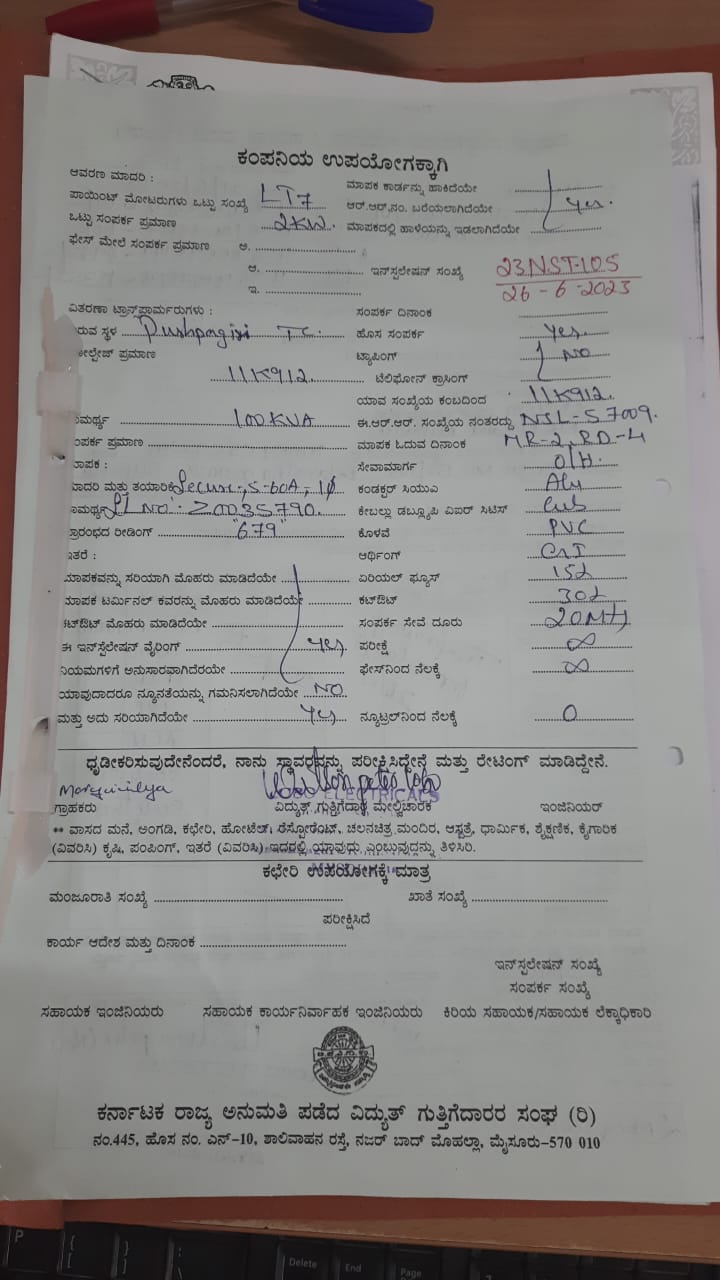 ಕಂಪನಿಯ ಉಪಯೋಗಕ್ಕಾಗಿ
ಆವರಣ ಮಾದರಿ : ಮಾಪಕ ಕಾರ್ಡನ್ನು ಹಾಕಿದೆಯೇ
ಪಾಯಿಂಟ್ ಮೋಟರುಗಳು ಒಟ್ಟು ಸಂಖ್ಯೆ LT7 ಆರ್.ಆರ್.ನಂ. ಬರೆಯಲಾಗಿದೆಯೇ Yes.
ಒಟ್ಟು ಸಂಪರ್ಕ ಪ್ರಮಾಣ 2KW. ಮಾಪಕದಲ್ಲಿ ಹಾಳೆಯನ್ನು ಇಡಲಾಗಿದೆಯೇ
ಫೇಸ್ ಮೇಲೆ ಸಂಪರ್ಕ ಪ್ರಮಾಣ ಅ.
ಆ. ಇನ್‌ಸ್ಟಲೇಷನ್ ಸಂಖ್ಯೆ 23NST-105
ಇ. 26-6-2023
ವಿತರಣಾ ಟ್ರಾನ್ಸ್‌ಫಾರ್ಮರುಗಳು : ಸಂಪರ್ಕ ದಿನಾಂಕ
ರುವ ಸ್ಥಳ Pushpagiri TC. ಹೊಸ ಸಂಪರ್ಕ Yes.
ಪ್ರಮಾಣ ಟ್ಯಾಪಿಂಗ್ NO
11K912. ಟೆಲಿಫೋನ್ ಕ್ರಾಸಿಂಗ್
ಯಾವ ಸಂಖ್ಯೆಯ ಕಂಬದಿಂದ 11K912.
ಮರ್ಥ್ಯ 100KVA ಈ.ಆರ್.ಆರ್. ಸಂಖ್ಯೆಯ ನಂತರದ್ದು NJL-57009.
ಂಪರ್ಕ ಪ್ರಮಾಣ ಮಾಪಕ ಓದುವ ದಿನಾಂಕ MR-2, RD-4
ಾಪಕ : ಸೇವಾಮಾರ್ಗ O/H.
ಾದರಿ ಮತ್ತು ತಯಾರಿಕೆ Secure, 5-60A, 1ϕ ಕಂಡಕ್ಟರ್ ಸಿಯುಎ Aly
ಾಮರ್ಥ್ಯ SL NO: 20035790. ಕೇಬಲ್ಲು ಡಬ್ಲ್ಯೂಪಿ ವಿಐರ್ ಸಿಟಿಸ್
್ರಾರಂಭದ ರೀಡಿಂಗ್ "679" ಕೊಳವೆ PVC
ಇತರೆ : ಆರ್ಥಿಂಗ್ CAI
ಮಾಪಕವನ್ನು ಸರಿಯಾಗಿ ಮೊಹರು ಮಾಡಿದೆಯೇ ಏರಿಯಲ್ ಫ್ಯೂಸ್
ಮಾಪಕ ಟರ್ಮಿನಲ್ ಕವರನ್ನು ಮೊಹರು ಮಾಡಿದೆಯೇ ಕಟ್‌ಔಟ್
ಕಟ್‌ಔಟ್ ಮೊಹರು ಮಾಡಿದೆಯೇ ಸಂಪರ್ಕ ಸೇವೆ ದೂರು
ಈ ಇನ್‌ಸ್ಟೆಲೇಷನ್ ವೈರಿಂಗ್ Yes ಪರೀಕ್ಷೆ ∞
ನಿಯಮಗಳಿಗೆ ಅನುಸಾರವಾಗಿದೆರಯೇ ಫೇಸ್‌ನಿಂದ ನೆಲಕ್ಕೆ ∞
ಯಾವುದಾದರೂ ನ್ಯೂನತೆಯನ್ನು ಗಮನಿಸಲಾಗಿದೆಯೇ NO
ಮತ್ತು ಅದು ಸರಿಯಾಗಿದೆಯೇ Yes ನ್ಯೂಟ್ರಲ್‌ನಿಂದ ನೆಲಕ್ಕೆ 0
ಧೃಡೀಕರಿಸುವುದೇನೆಂದರೆ, ನಾನು ಸ್ಥಾವರವನ್ನು ಪರೀಕ್ಷಿಸಿದ್ದೇನೆ ಮತ್ತು ರೇಟಿಂಗ್ ಮಾಡಿದ್ದೇನೆ.
ELECTRICALS
ಗ್ರಾಹಕರು ವಿದ್ಯುತ್ ಗುತ್ತಿಗೆದಾರ ಮೇಲ್ವಿಚಾರಕ ಇಂಜಿನಿಯರ್
** ವಾಸದ ಮನೆ, ಅಂಗಡಿ, ಕಛೇರಿ, ಹೋಟೆಲ್, ರೆಸ್ಟೋರೆಂಟ್, ಚಲನಚಿತ್ರ ಮಂದಿರ, ಆಸ್ಪತ್ರೆ, ಧಾರ್ಮಿಕ, ಶೈಕ್ಷಣಿಕ, ಕೈಗಾರಿಕ
(ವಿವರಿಸಿ) ಕೃಷಿ, ಪಂಪಿಂಗ್, ಇತರೆ (ವಿವರಿಸಿ) ಇದರಲ್ಲಿ ಯಾವುದು ಎಂಬುವುದನ್ನು ತಿಳಿಸಿರಿ.
ಕಛೇರಿ ಉಪಯೋಗಕ್ಕೆ ಮಾತ್ರ
ಮಂಜೂರಾತಿ ಸಂಖ್ಯೆ ಖಾತೆ ಸಂಖ್ಯೆ
ಪರೀಕ್ಷಿಸಿದೆ
ಕಾರ್ಯ ಆದೇಶ ಮತ್ತು ದಿನಾಂಕ
ಇನ್‌ಸ್ಟಲೇಷನ್ ಸಂಖ್ಯೆ
ಸಂಪರ್ಕ ಸಂಖ್ಯೆ
ಸಹಾಯಕ ಇಂಜಿನಿಯರು ಸಹಾಯಕ ಕಾರ್ಯನಿರ್ವಾಹಕ ಇಂಜಿನಿಯರು ಕಿರಿಯ ಸಹಾಯಕ/ಸಹಾಯಕ ಲೆಕ್ಕಾಧಿಕಾರಿ
ಕರ್ನಾಟಕ ರಾಜ್ಯ ಅನುಮತಿ ಪಡೆದ ವಿದ್ಯುತ್ ಗುತ್ತಿಗೆದಾರರ ಸಂಘ (ರಿ)
ನಂ.445, ಹೊಸ ನಂ. ಎನ್-10, ಶಾಲಿವಾಹನ ರಸ್ತೆ, ನಜರ್ ಬಾದ್ ಮೊಹಲ್ಲಾ, ಮೈಸೂರು-570 010
P
Delete
End
Page